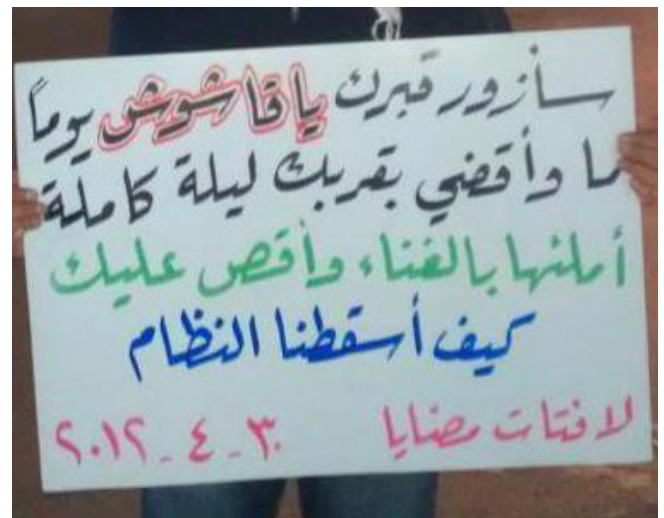 سأزور قبرك يا قاشوش يوماً
ما وأقضي بقربك ليلة كاملة
أملئها بالغناء وأقص عليك
كيف أسقطنا النظام
لافتات مضايا ٣٠ - ٤ - ٢٠١٢